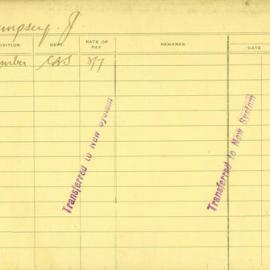 mpsey. J
OSITION DEPT. RATE OF PAY REMARKS DATE
mber CAS 8/7
Transferred to New System
Transferred to New System